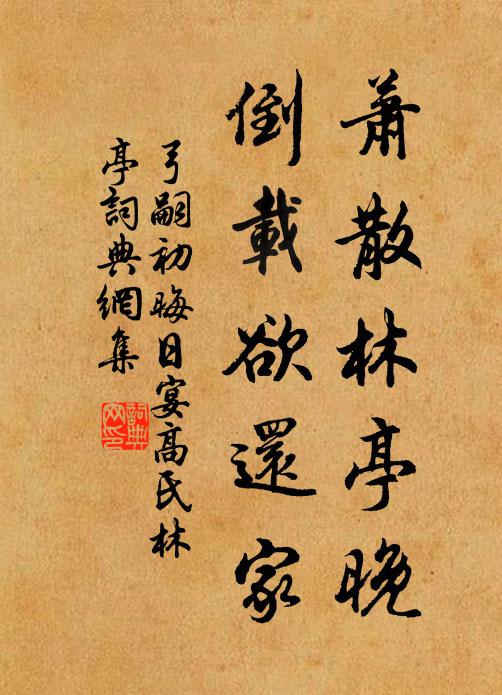 蕭散林亭晚
倒載欲還家
弓嗣初晦日宴高氏林
亭詞典網集
詞典網印